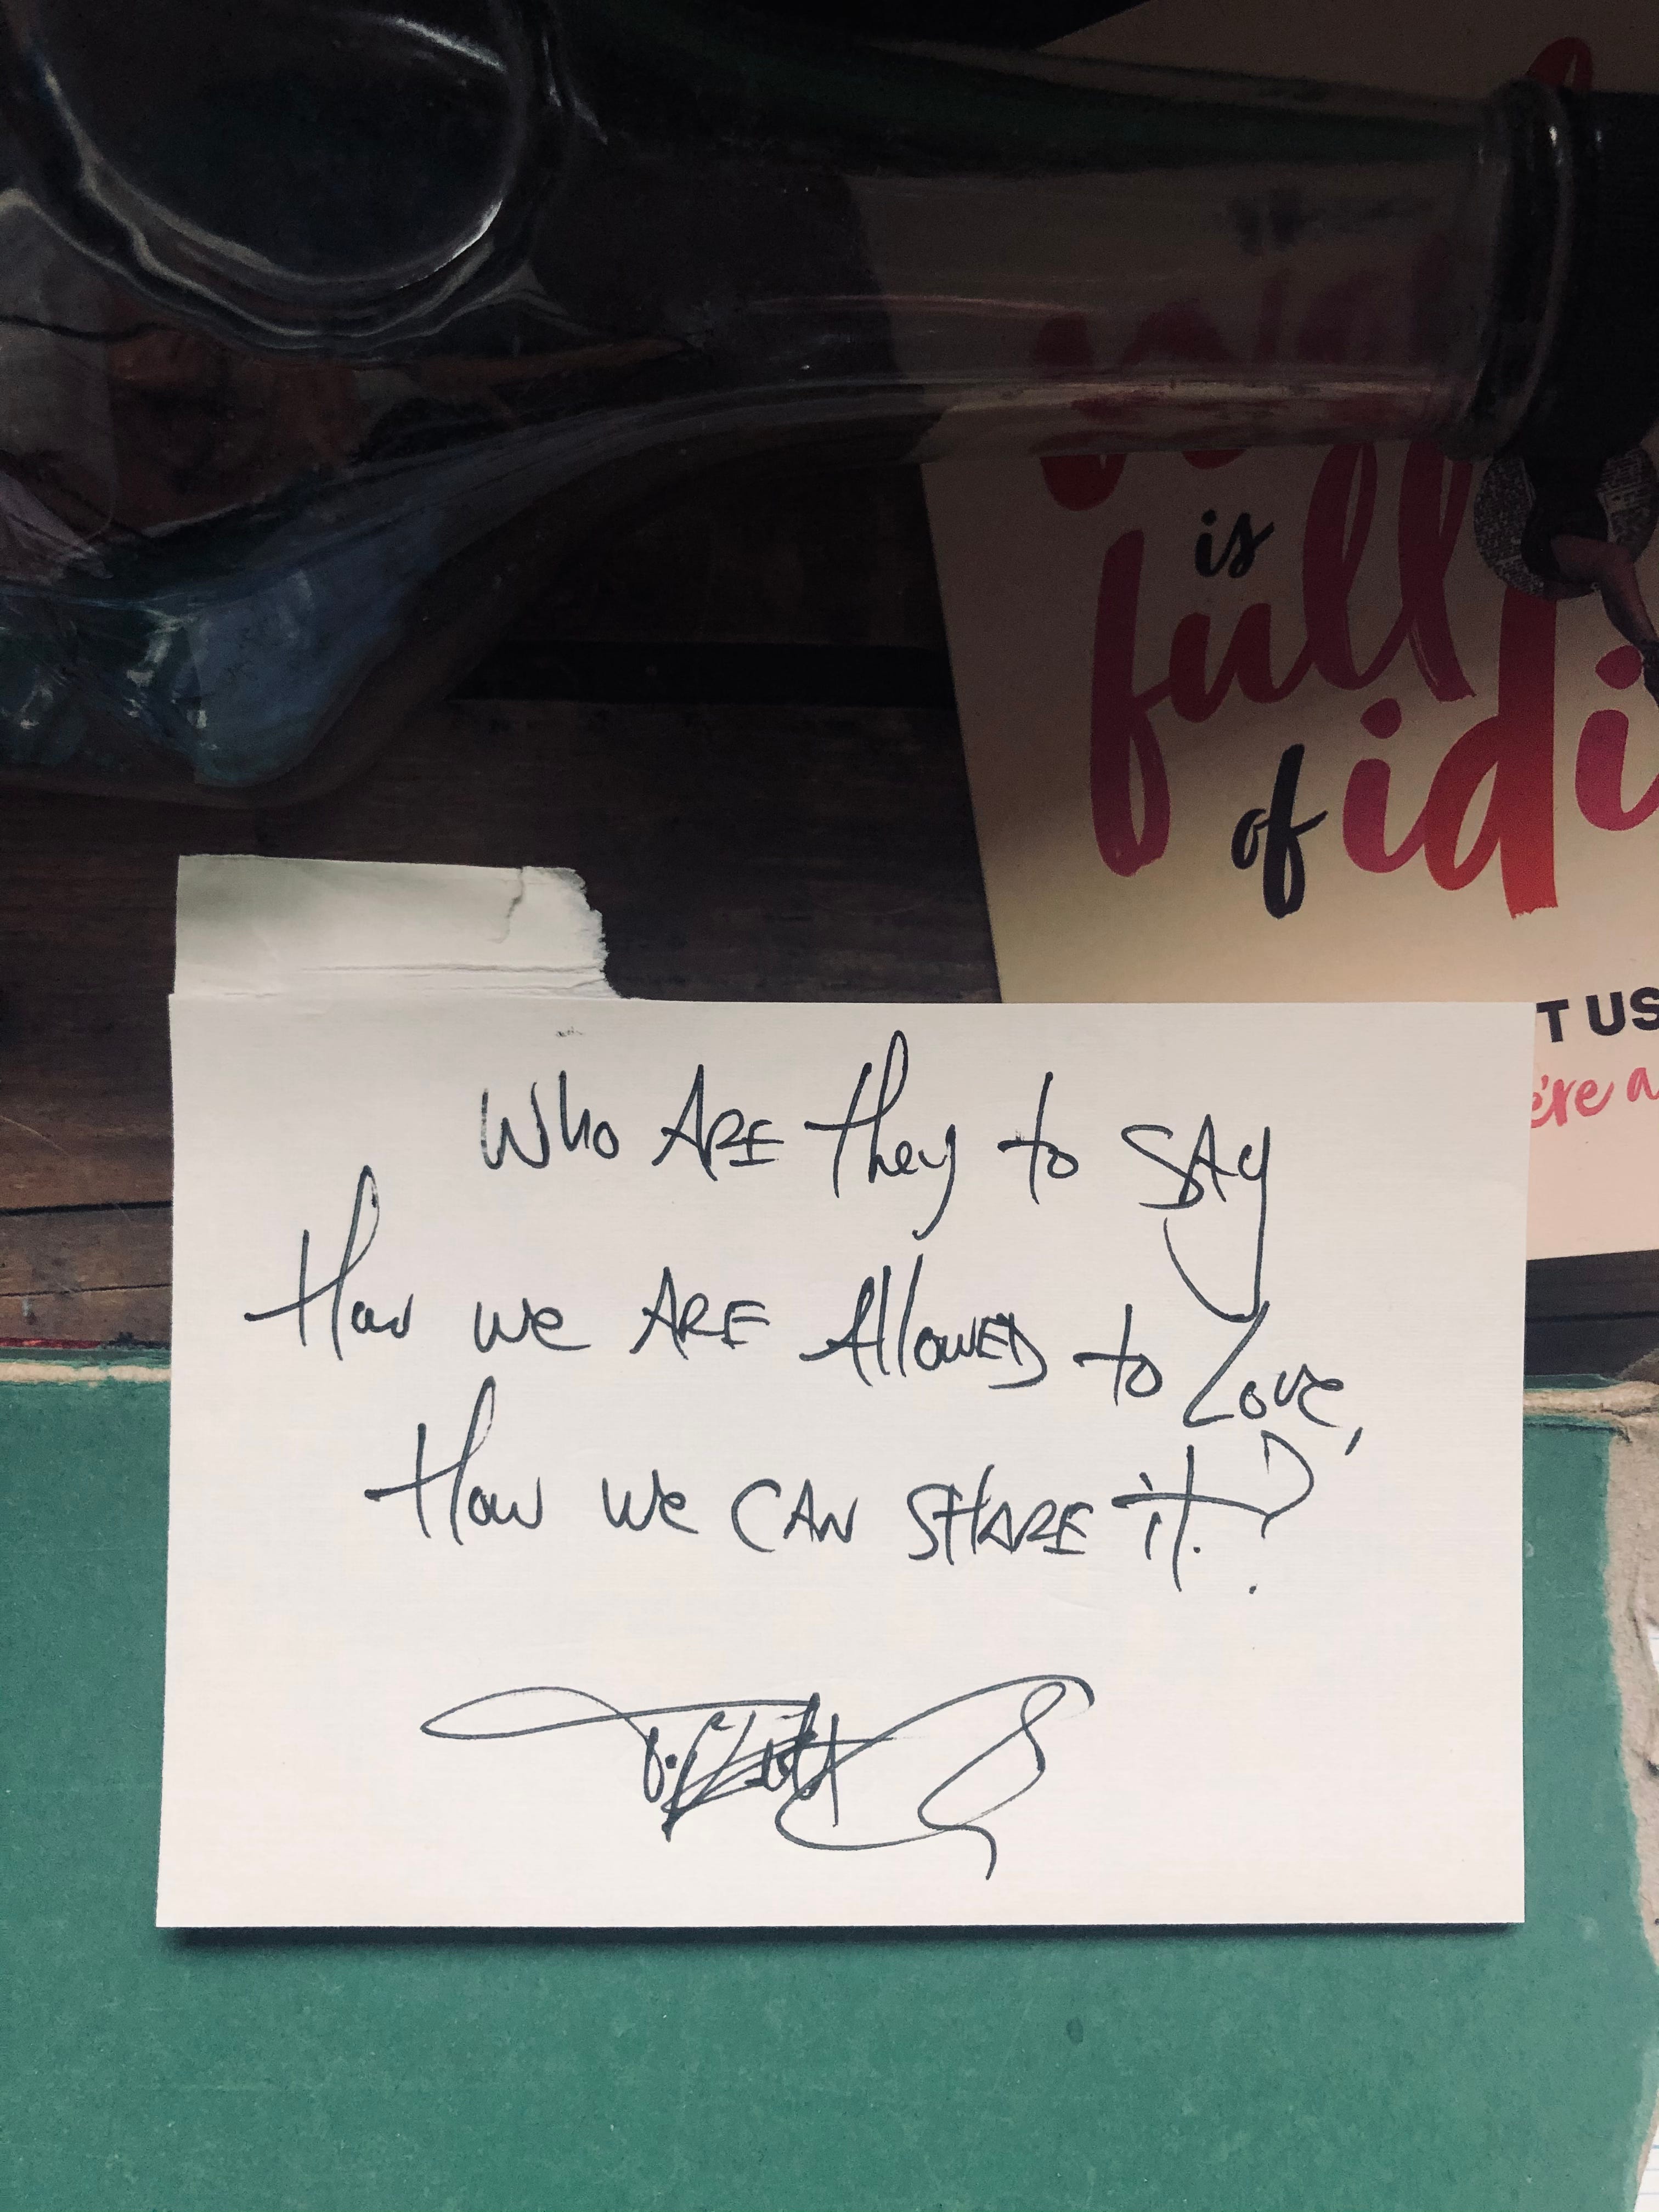 is
full
of idi
T US
e're a
Who ARE they to SAy
How we ARE Allowed to Love,
How we CAN SHARE it.?